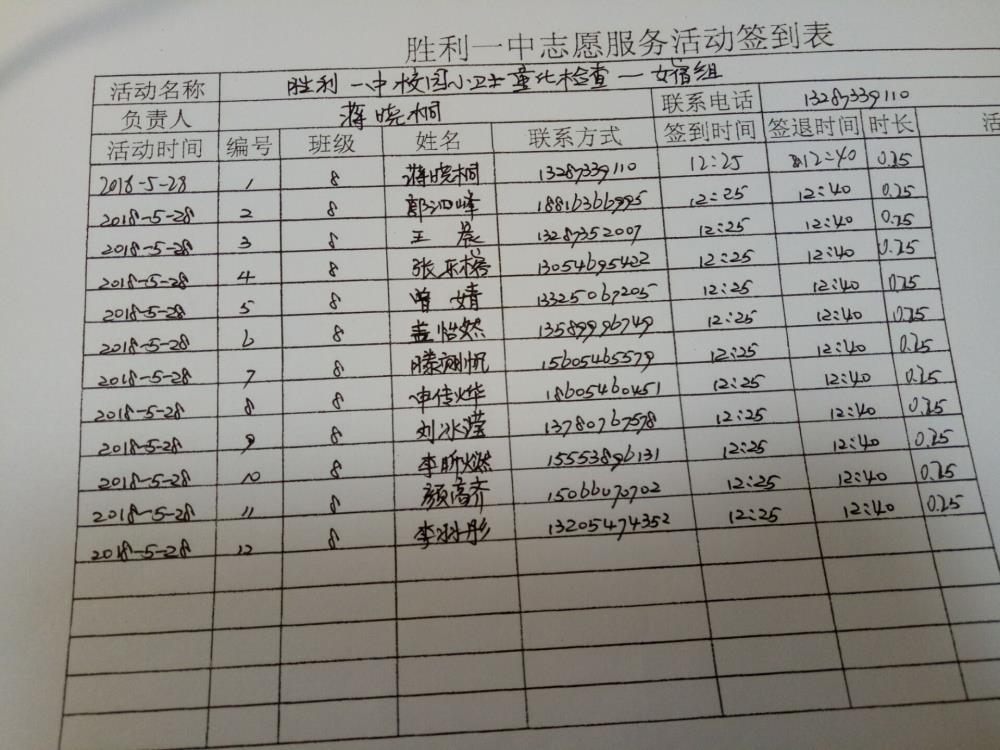 胜利一中志愿服务活动签到表
活动名称 胜利一中校园小卫士量化检查一女宿组
负责人 蒋晓桐 联系电话 13287339110
活动时间 编号 班级 姓名 联系方式 签到时间 签退时间 时长 活
2018-5-28 1 8 蒋晓桐 13287339110 12:25 12:40 0.25
2018-5-28 2 8 郭泗峰 18816366995 12:25 12:40 0.25
2018-5-28 3 8 王晨 13287352007 12:25 12:40 0.25
2018-5-28 4 8 张乐榕 13054695422 12:25 12:40 0.25
2018-5-28 5 8 曾婧 13325067205 12:25 12:40 0.25
2018-5-28 6 8 盖怡然 13589996749 12:25 12:40 0.25
2018-5-28 7 8 滕翊帆 15605465579 12:25 12:40 0.25
2018-5-28 8 8 申传烨 18605460451 12:25 12:40 0.25
2018-5-28 9 8 刘冰滢 13780767578 12:25 12:40 0.25
2018-5-28 10 8 李昕燃 15553896131 12:25 12:40 0.25
2018-5-28 11 8 颜高齐 15066070702 12:25 12:40 0.25
2018-5-28 12 8 李羽彤 13205474352 12:25 12:40 0.25